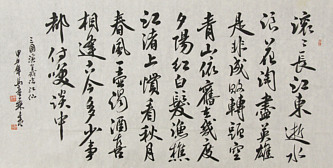 滚〻長江東逝水
浪花淘盡英雄
是非成敗轉頭空
青山依舊在幾度
夕陽紅白髮漁樵
江渚上慣看秋月
春風一壺濁酒喜
相逢古今多少事
都付笑談中
三國演義臨江仙
甲午年